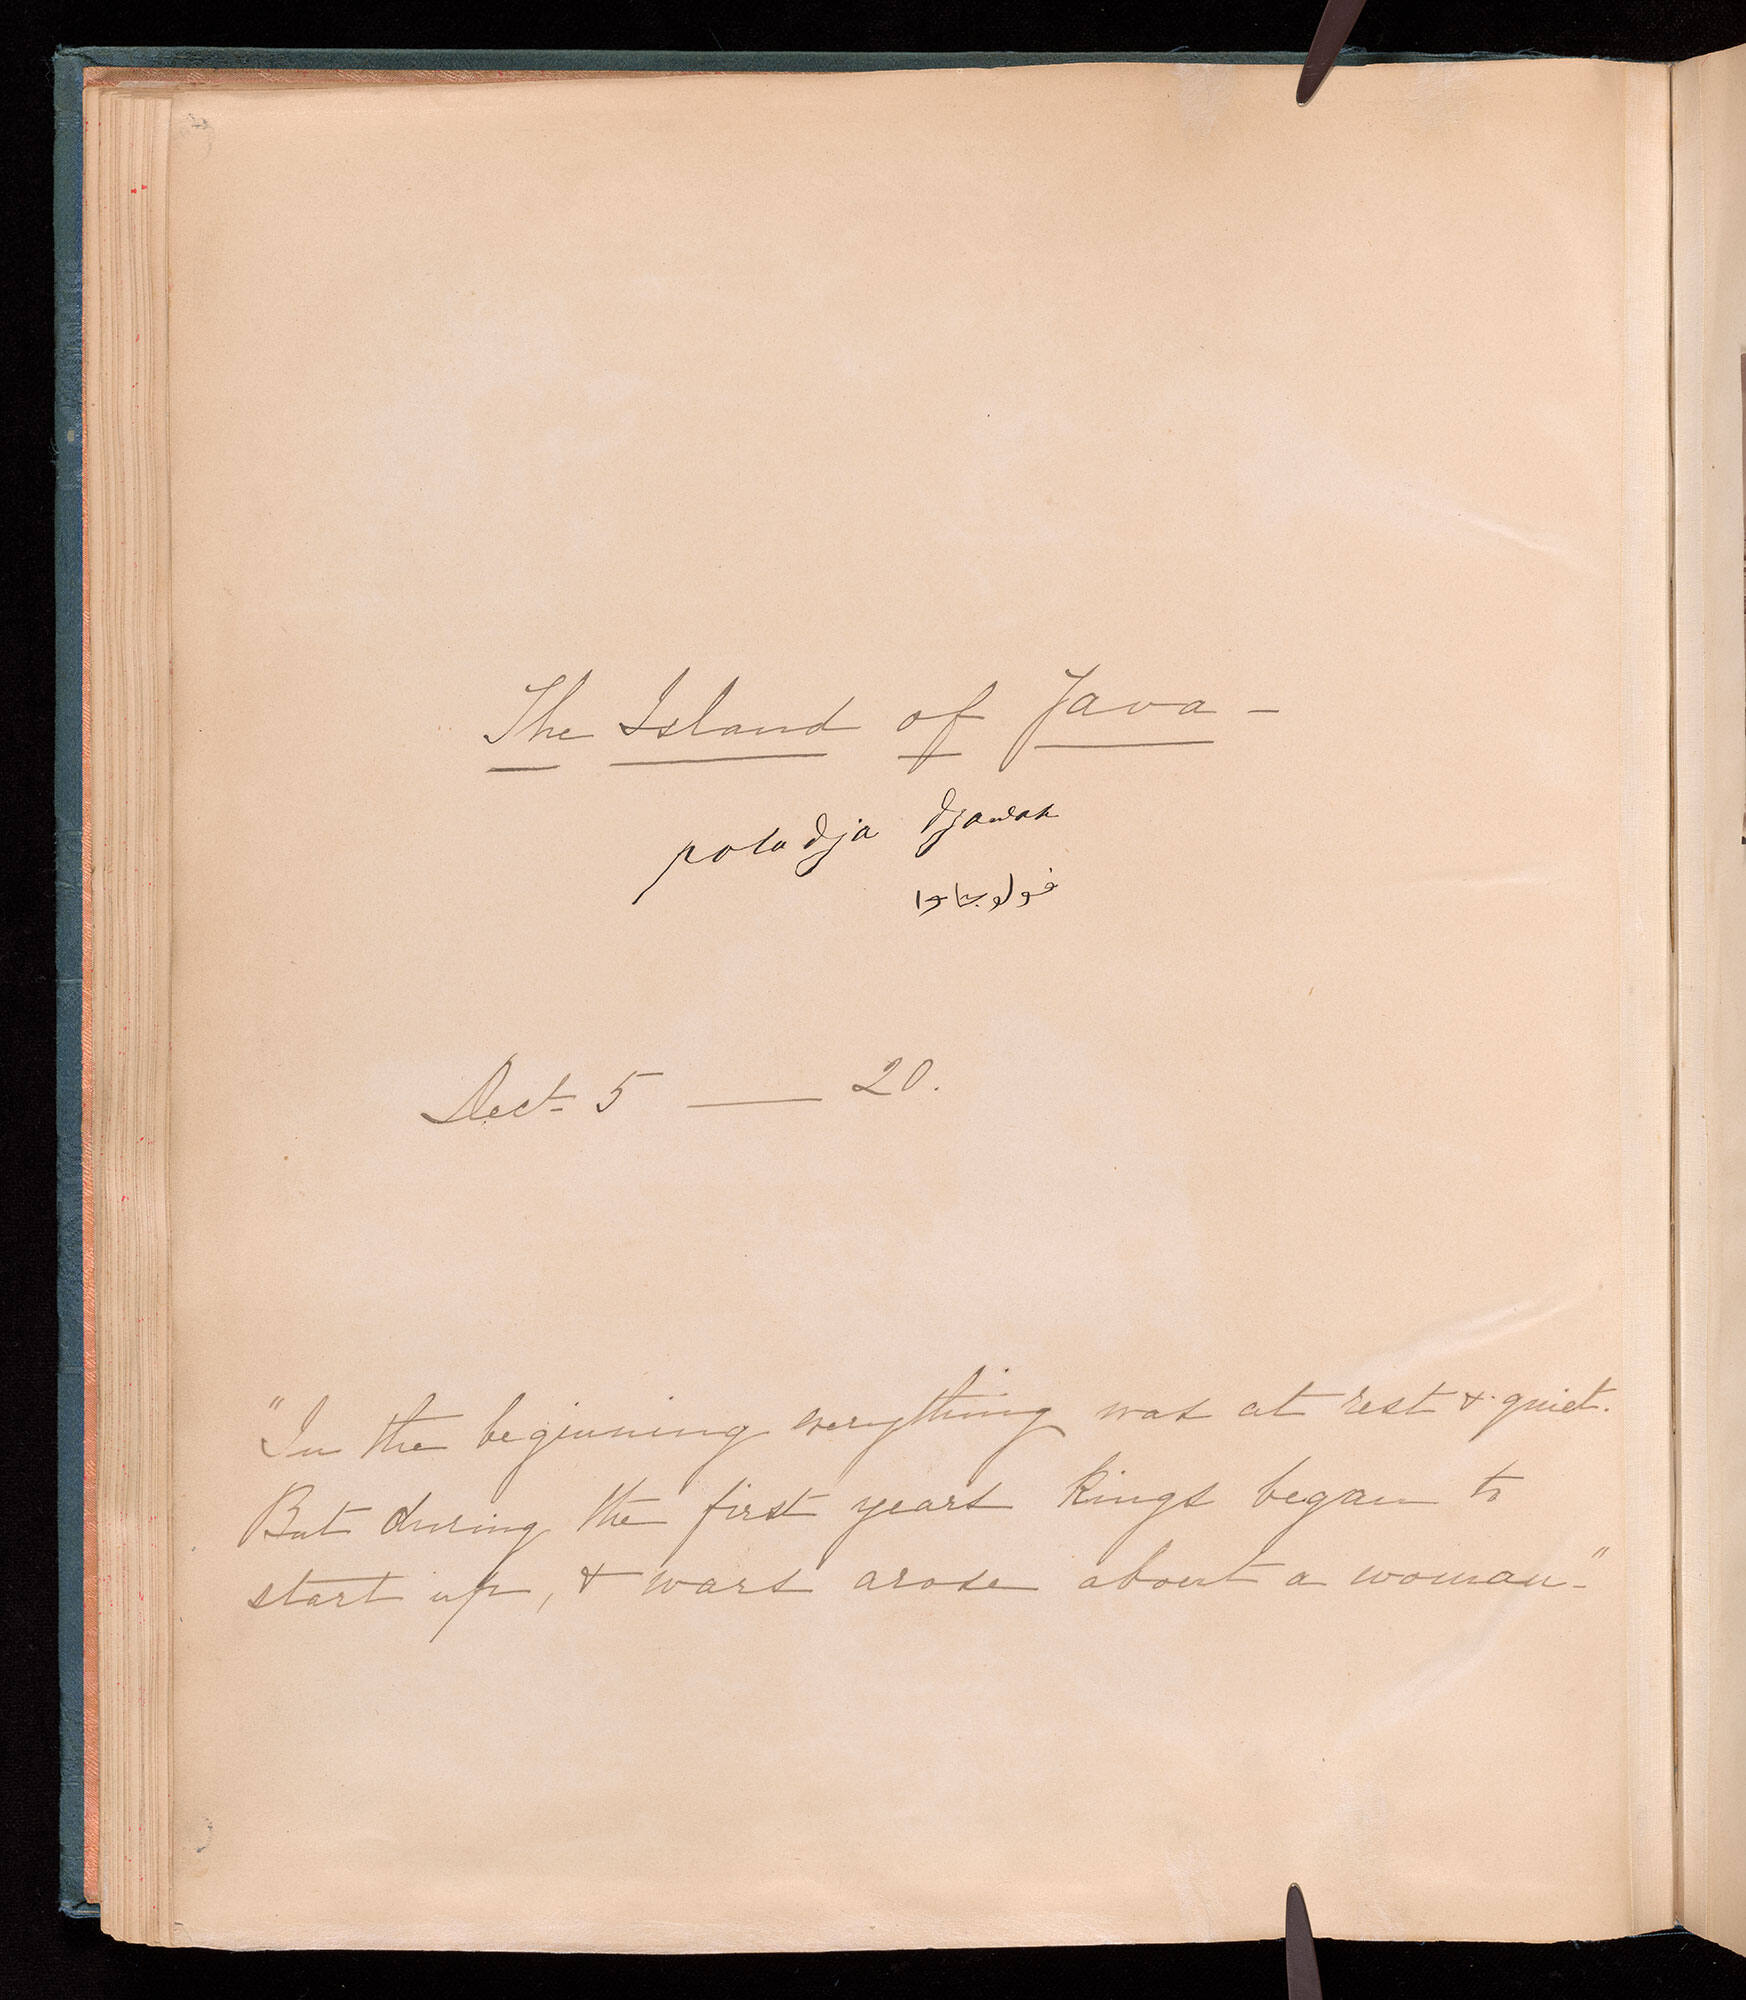 The Island of Java -
polodja djawah
فولوجاوا
Dect- 5 — 20.
"In the beginning everything was at rest & quiet.
But during the first years kings began to
start up, & wars arose about a woman-"